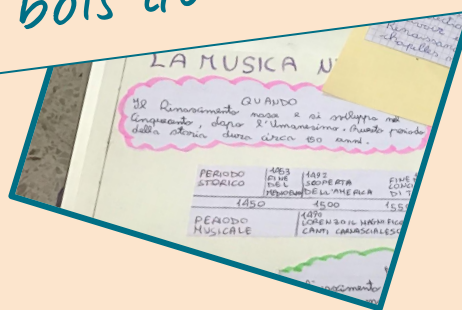 bois
LA MUSICA N
QUANDO
Il Rinascimento nasce e si sviluppa nel
Cinquecento, dopo l'Umanesimo. Questo periodo
della storia dura circa 150 anni.
PERIODO STORICO
1453 FINE DEL MEDIOEVO
1492 SCOPERTA DELL'AMERICA
FINE
1450 1500 155
PERIODO MUSICALE
1490 LORENZO IL MAGNIFICO CANTI CARNASCIALESC